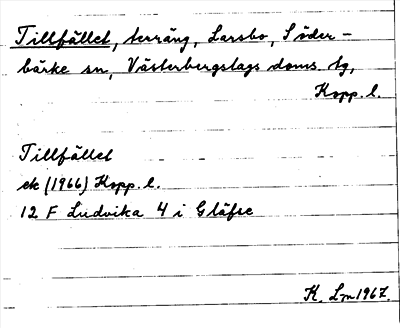 Tillfället, terräng, Larsbo, Söder-
bärke sn, Västerbergslags doms. tg,
Kopp. l.
Tillfället
ek (1966) Kopp. l.
12 F Ludvika 4 i Gläfse
K. Lm 1967.